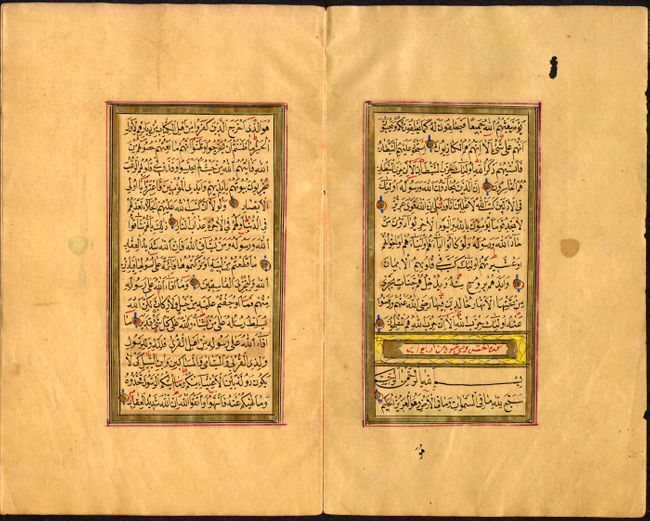 يوم يبعثهم الله جميعا فيحلفون له كما يحلفون لكم ويحسبون
انهم على شئ الا انهم هم الكاذبون استحوذ عليهم الشيطان
فانسيهم ذكر الله اولئك حزب الشيطان الا ان حزب الشيطان
هم الخاسرون ان الذين يحادون الله ورسوله اولئك
في الاذلين كتب الله لاغلبن انا ورسلي ان الله قوي عزيز
لا تجد قوما يؤمنون بالله واليوم الاخر يوادون من
حاد الله ورسوله ولو كانوا اباءهم او ابناءهم او اخوانهم
او عشيرتهم اولئك كتب في قلوبهم الايمان
وايدهم بروح منه ويدخلهم جنات تجري
من تحتها الانهار خالدين فيها رضي الله عنهم ورضوا
عنه اولئك حزب الله الا ان حزب الله هم المفلحون
بسم الله الرحمن الرحيم
سبح لله ما في السموات وما في الارض وهو العزيز الحكيم
هو
هو الذي اخرج الذين كفروا من اهل الكتاب من ديارهم لاول
الحشر ما ظننتم ان يخرجوا وظنوا انهم مانعتهم حصونهم من
الله فاتيهم الله من حيث لم يحتسبوا وقذف في قلوبهم الرعب
يخربون بيوتهم بايديهم وايدي المؤمنين فاعتبروا يا اولي
الابصار ولولا ان كتب الله عليهم الجلاء لعذبهم
في الدنيا ولهم في الاخرة عذاب النار ذلك بانهم شاقوا
الله ورسوله ومن يشاق الله فان الله شديد العقاب
ما قطعتم من لينة او تركتموها قائمة على اصولها فباذن
الله وليخزي الفاسقين وما افاء الله على رسوله
منهم فما اوجفتم عليه من خيل ولا ركاب ولكن الله
يسلط رسله على من يشاء والله على كل شئ قدير ما
افاء الله على رسوله من اهل القرى فلله وللرسول
ولذي القربى واليتامى والمساكين وابن السبيل كي لا
يكون دولة بين الاغنياء منكم وما اتيكم الرسول فخذوه
وما نهيكم عنه فانتهوا واتقوا الله ان الله شديد العقاب